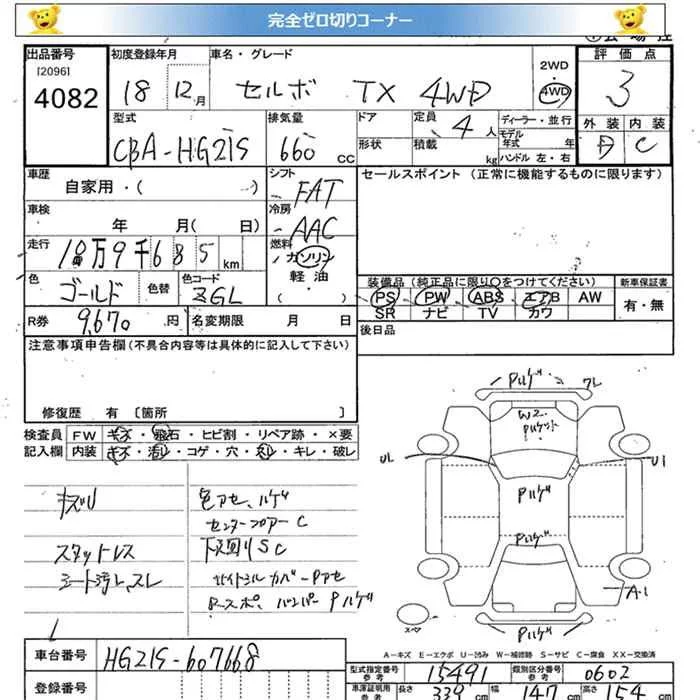 完全ゼロ切りコーナー
出品番号 初度登録年月 車名・グレード 2WD 評価点
(2096) 4082 18 12月 セルボ TX 4WD 4WD 3
型式 排気量 ドア 定員 4人 ディーラー・並行 外装 内装
CBA-HG21S 660 cc 形状 積載 kg モデル年式 年式 ハンドル 左・右 C
車歴 シフト セールスポイント (正常に機能するものに限ります)
自家用・( ) FAT
車検 冷房
年 月( 日) AAC
走行 燃料
万9千685km ガソリン
色 色コード 軽油
ゴールド 色替 ZGL ( )
装備品 (純正品に限り○をつけてください) 新車保証書
PS PW ABS エアB AW 有・無
SR ナビ TV カワ
R券 9,670円 名変期限 月 日 後日品
注意事項申告欄(不具合内容等は具体的に記入して下さい)
修復歴 有 〔箇所 〕
検査員 FW キズ・飛石・ヒビ割・リペア跡・×要
記入欄 内装 キズ・汚レ・コゲ・穴・スレ・キレ・破レ
キズU 色アセ、ハゲ
センターフロアーC
スタットレス 下廻りSC
シート汚レ、スレ サイドシルカバーPアセ
Rースポ、バンパーPハゲ
Pハゲ
W2
UL U1
Pハゲ
Pハゲ
A1
Pハゲ
A－キズ E－エクボ U－凹み W－補修跡 S－サビ C－腐食 XX－交換済
車台番号 HG21S-607668
登録番号
型式指定番号 参考 15491 類別区分番号 参考 0602
車庫証明用 参考 長さ 339cm 幅 147cm 高さ 154cm